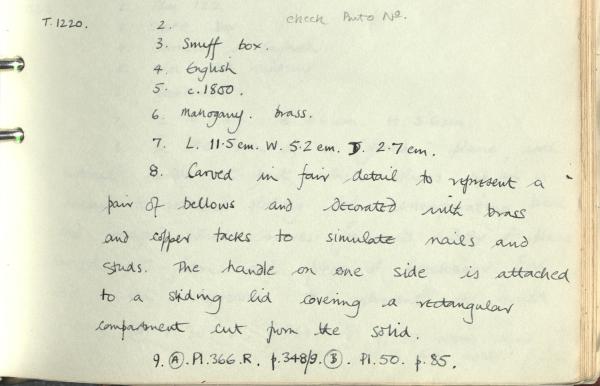 check Photo No.
T.1220. 2.
3. Snuff box.
4. English
5. c.1800.
6. Mahogany. brass.
7. L. 11.5cm. W. 5.2 cm. D. 2.7 cm.
8. Carved in fair detail to represent a
pair of bellows and decorated with brass
and copper tacks to simulate nails and
studs. The handle on one side is attached
to a sliding lid covering a rectangular
compartment cut from the solid.
9. Ⓐ. Pl.366.R. p.348/9. Ⓑ. Pl.50. p.85.